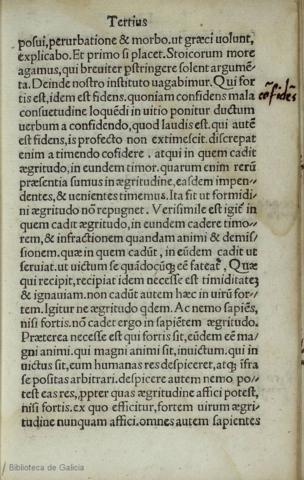 Tertius
posui, perurbatione & morbo. ut græci uolunt,
explicabo. Et primo si placet. Stoicorum more
agamus, qui breuiter pstringere solent argumē-
ta. Deinde nostro instituto uagabimur. Qui for
tis est, idem est fidens. quoniam confidens mala
cōfidēs
consuetudine loquēdi in uitio ponitur ductum
uerbum a confidendo, quod laudis est. qui autē
est fidens, is profecto non extimescit. discrepat
enim a timendo cōfidere. atqui in quem cadit
ægritudo, in eundem timor. quarum enim rerū
præsentia sumus in ægritudine, easdem impen-
dentes, & uenientes timemus. Ita fit ut formidi-
ni ægritudo nō repugnet. Verisimile est igit in
quem cadit ægritudo, in eundem cadere timo-
rem, & infractionem quandam animi & demis-
sionem. quæ in quem cadūt, in eūdem cadit ut
seruiat. ut uictum se quādocūq; eē fateat. Quæ
qui recipit, recipiat idem necesse est timiditatē
& ignauiam. non cadūt autem hæc in uirū for-
tem. Igitur ne ægritudo qdem. Ac nemo sapiēs,
nisi fortis. nō cadet ergo in sapiētem ægritudo.
Præterea necesse est qui fortis sit, eūdem eē ma
gni animi. qui magni animi sit, inuictum. qui in
uictus sit, eum humanas res despicere, atq; ifra
se positas arbitrari. despicere autem nemo po-
test eas res, ppter quas ægritudine affici potest,
nisi fortis. ex quo efficitur, fortem uirum ægri-
tudine nunquam affici. omnes autem sapientes
Biblioteca de Galicia